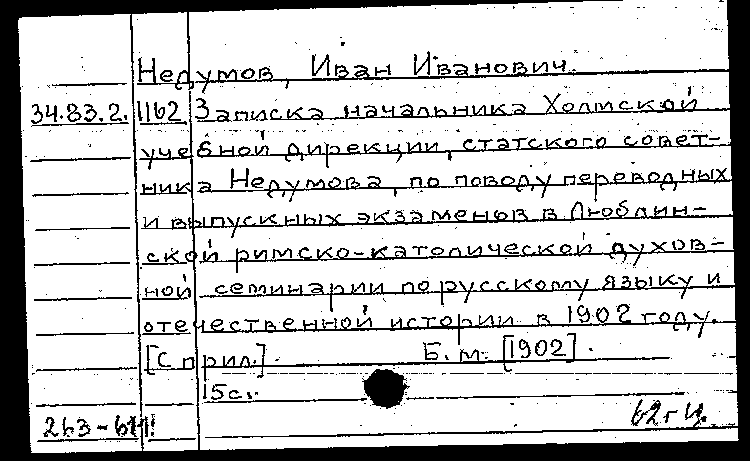 Недумов, Иван Иванович.
34.83.2. 1162 Записка начальника Холмской
учебной дирекции, статского совет-
ника Недумова, по поводу переводных
и выпускных экзаменов в Люблин-
ской римско-католической духов-
ной семинарии по русскому языку и
отечественной истории в 1902 году.
[С прил.]. Б.м. [1902].
15с.
62г